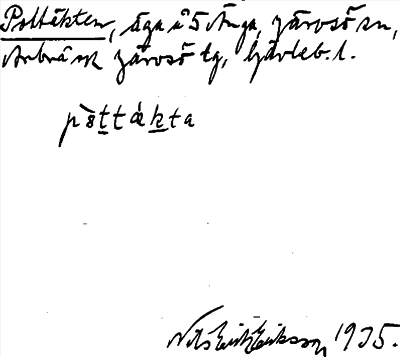 Pottäkten, äga å 5 Änga, Järvsö sn,
Arbrå ok Järvsö tg, Gävleb. l.
pättäkta
Nils Erik Eriksson 1935.